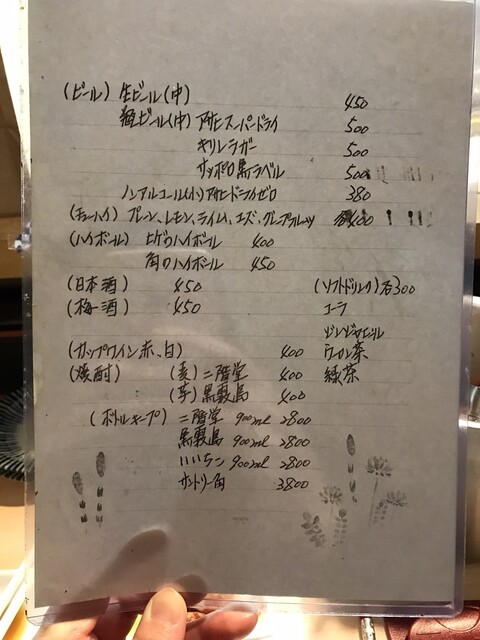 (ビール) 生ビール(中) 450
瓶ビール(中) アサヒスーパードライ 500
キリンラガー 500
サッポロ黒ラベル 500
ノンアルコール(小)アサヒドライゼロ 380
(チューハイ) プレーン、レモン、ライム、ユズ、グレープフルーツ 400
(ハイボール) ヒゲのハイボール 400
角のハイボール 450
(日本酒) 450 (ソフトドリンク)各300
(梅酒) 450 コーラ
ジンジャエール
(カップワイン.赤、白) 400 ウーロン茶
(焼酎) (麦) 二階堂 400 緑茶
(芋) 黒霧島 400
(ボトルキープ) 二階堂 900ml 2800
黒霧島 900ml 2800
いいちこ 900ml 2800
サントリー角 3800